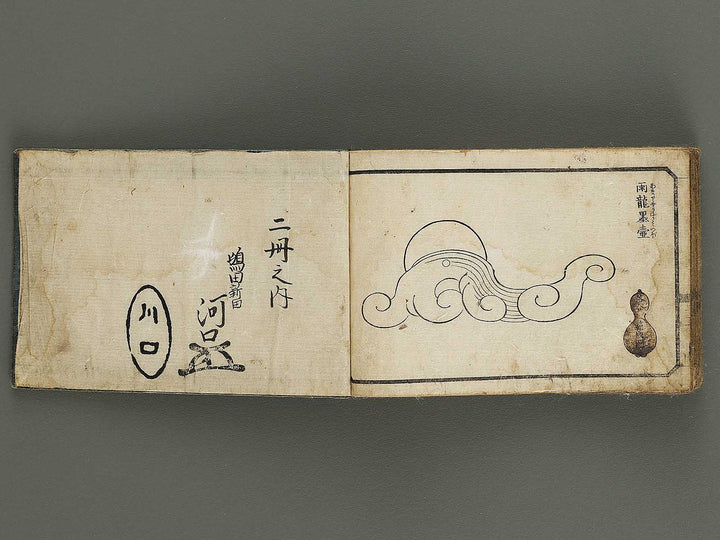 雨龍墨壷
二冊之内
嶋田新田
河口
川口